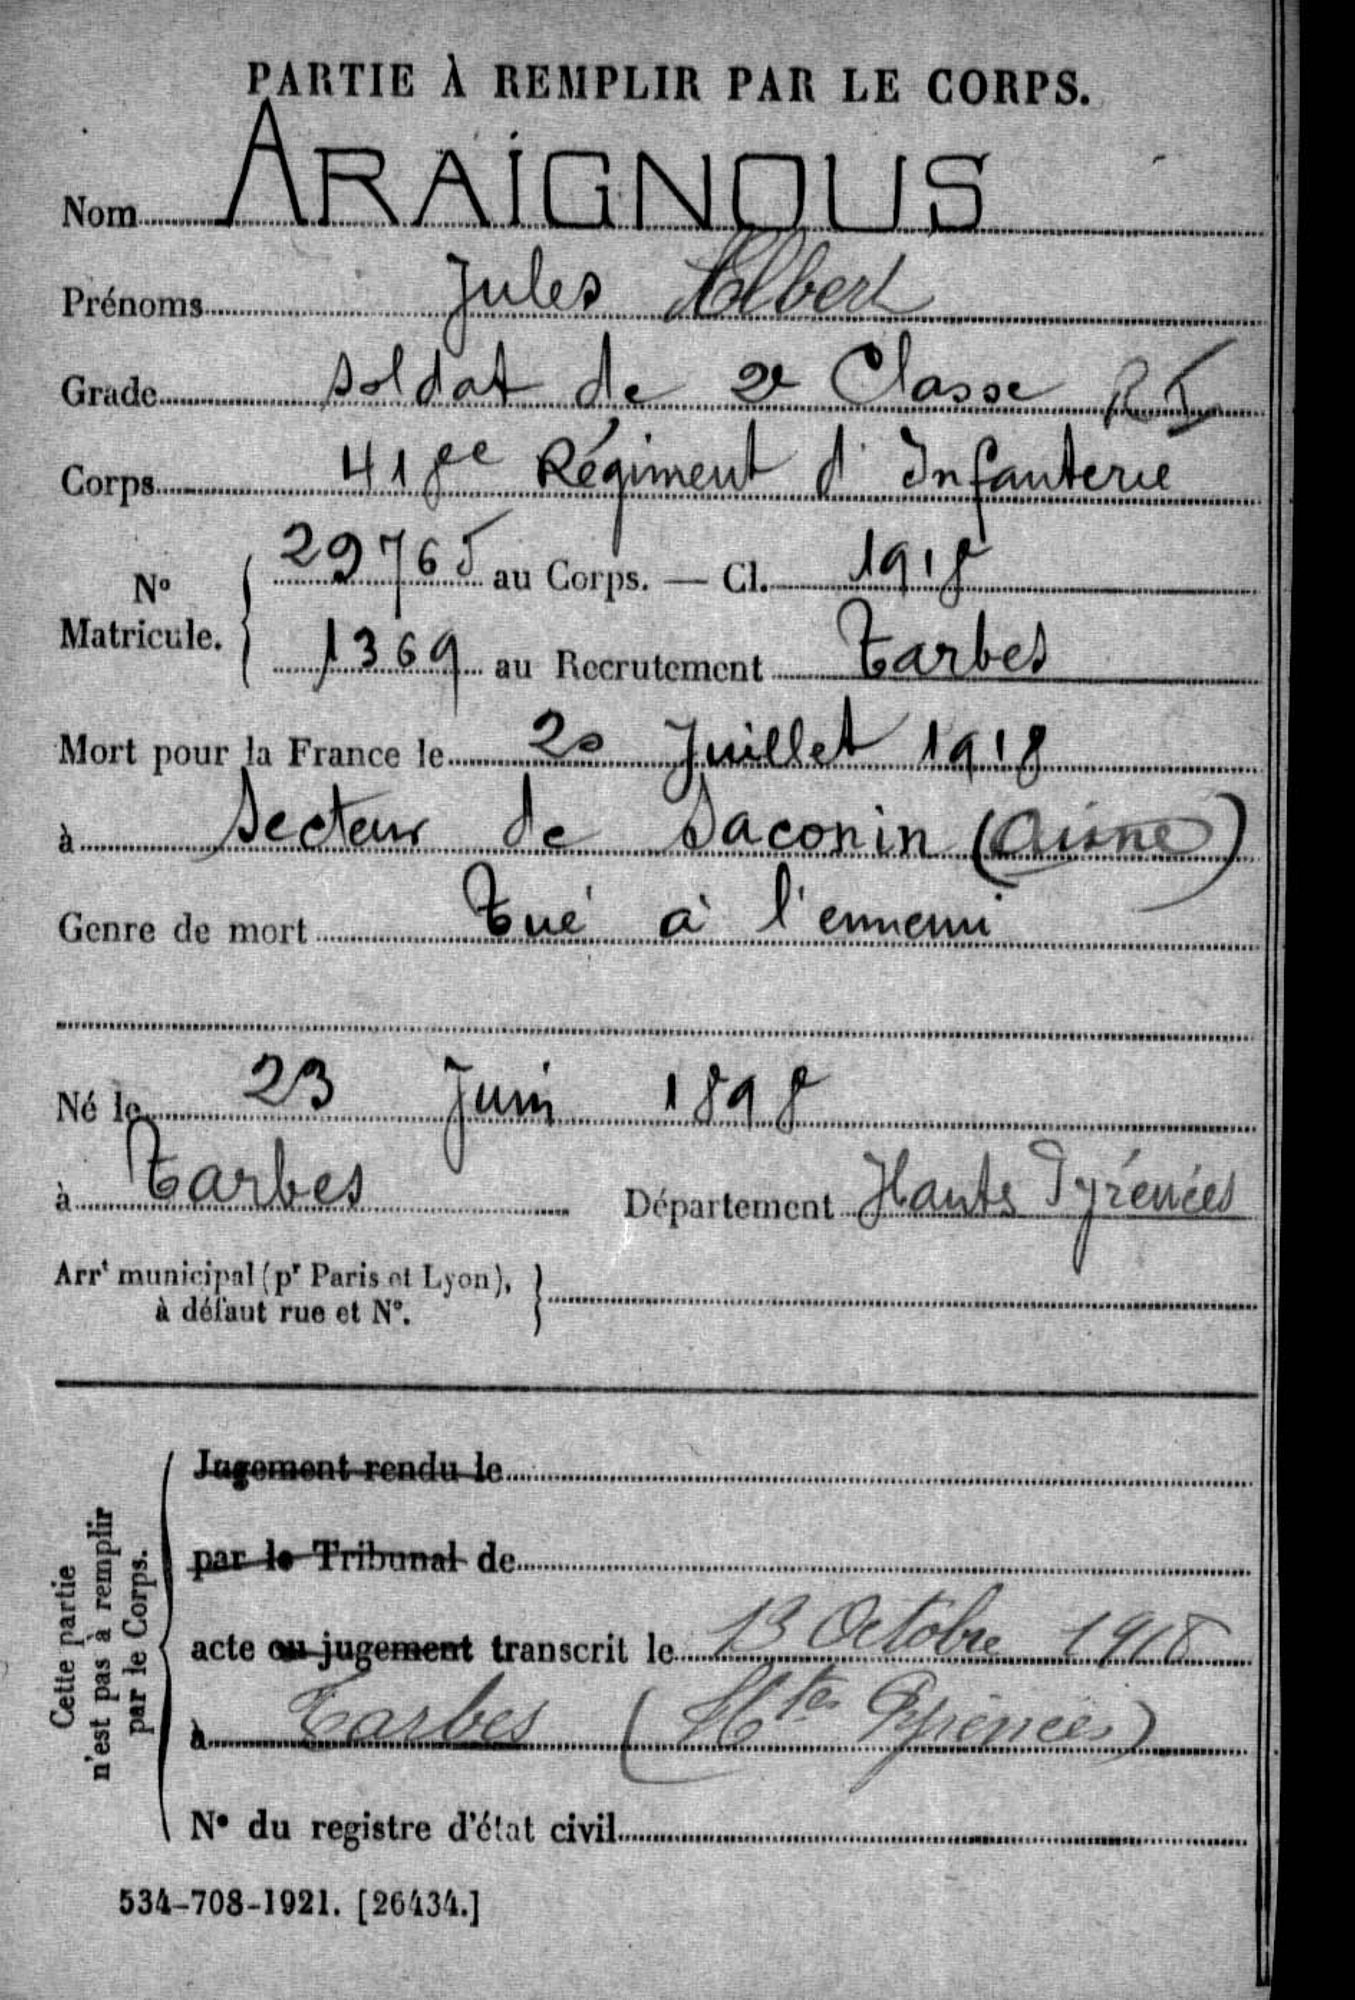 PARTIE À REMPLIR PAR LE CORPS.
Nom ARAIGNOUS
Prénoms Jules Albert
Grade soldat de 2e Classe RI
Corps 418ee Régiment d'Infanterie
N° Matricule. { 29765 au Corps. — Cl. 1918
1369 au Recrutement Tarbes
Mort pour la France le 20 Juillet 1918
à Secteur de Saconin (Aisne)
Genre de mort Tué à l'ennemi
Né le 23 Juin 1898
à Tarbes Département Hautes Pyrénées
Arrt municipal (pr Paris et Lyon), }
à défaut rue et N°.
Cette partie
n'est pas à remplir
par le Corps.
Jugement rendu le
par le Tribunal de
acte ou jugement transcrit le 13 Octobre 1918
à Tarbes (Htes Pyrénées)
N° du registre d'état civil
534-708-1921. [26434.]